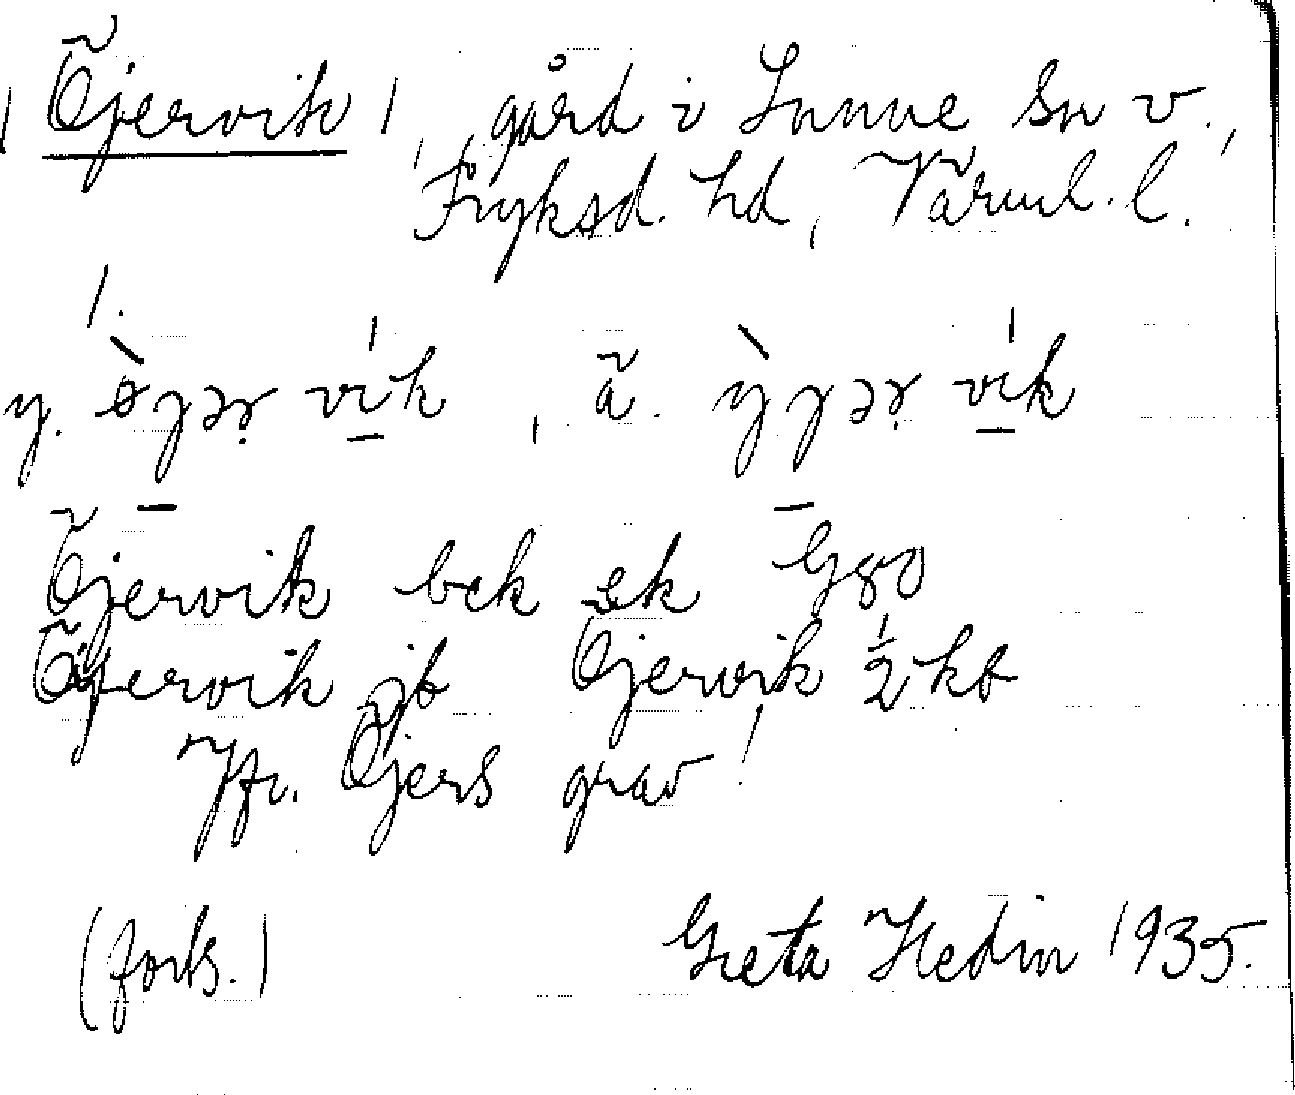 1 Öjervik 1, gård i Sunne sn v.,
Fryksd. hd, Värml. l.
1.
y. vik, ä. vik
Öjervik bek ek G80
Öjervik jb Öjervik ½ kb
Jfr. Öjers grav!
(forts.) Greta Hedin 1935.